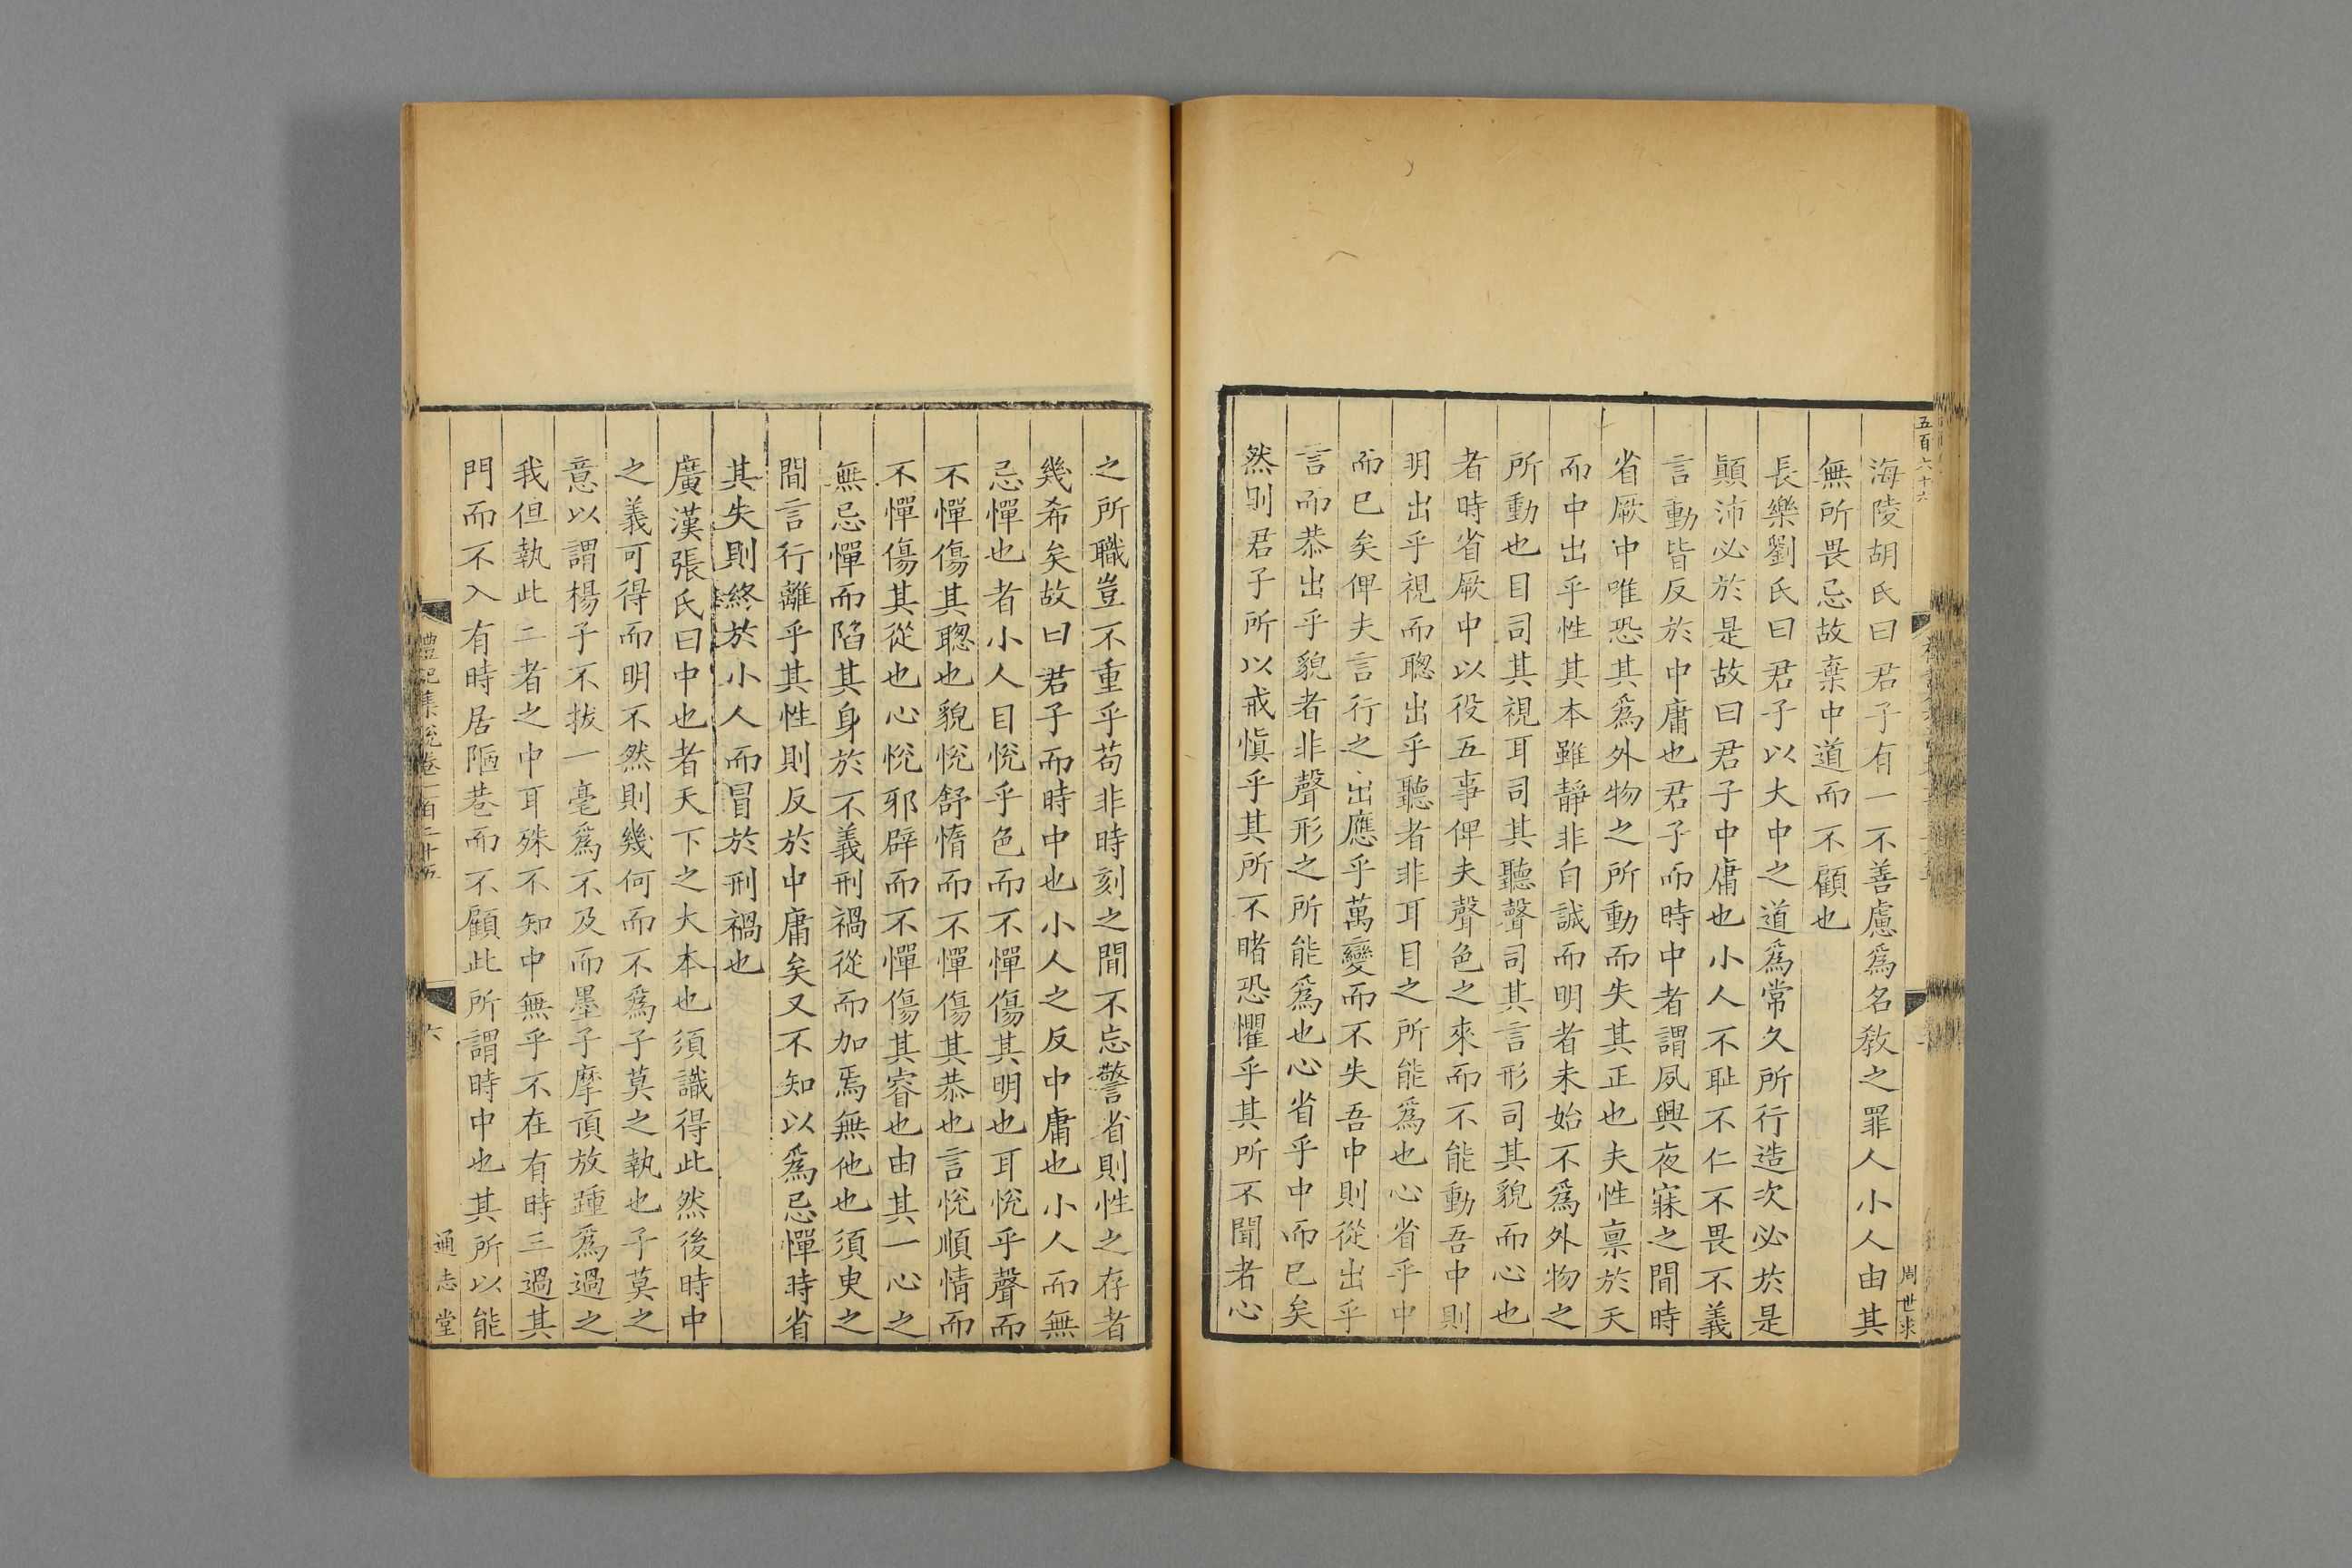 五百六十六
海陵胡氏曰君子有一不善慮爲名敎之罪人小人由其
無所畏忌故棄中道而不顧也
長樂劉氏曰君子以大中之道爲常久所行造次必於是
顚沛必於是故曰君子中庸也小人不耻不仁不畏不義
言動皆反於中庸也君子而時中者謂夙興夜寐之間時
省厥中唯恐其爲外物之所動而失其正也夫性禀於天
而中出乎性其本雖靜非自誠而明者未始不爲外物之
所動也目司其視耳司其聽聲司其言形司其貌而心也
者時省厥中以役五事俾夫聲色之來而不能動吾中則
明出乎視而聰出乎聽者非耳目之所能爲也心省乎中
而已矣俾夫言行之出應乎萬變而不失吾中則從出乎
言而恭出乎貌者非聲形之所能爲也心省乎中而已矣
然則君子所以戒愼乎其所不睹恐懼乎其所不聞者心
周世求
之所職豈不重乎苟非時刻之間不忘警省則性之存者
幾希矣故曰君子而時中也小人之反中庸也小人而無
忌憚也者小人目恱乎色而不憚傷其明也耳恱乎聲而
不憚傷其聰也貌恱舒惰而不憚傷其恭也言恱順情而
不憚傷其從也心恱邪辟而不憚傷其睿也由其一心之
無忌憚而陷其身於不義刑禍從而加焉無他也須臾之
間言行離乎其性則反於中庸矣又不知以爲忌憚時省
其失則終於小人而冒於刑禍也
廣漢張氏曰中也者天下之大本也須識得此然後時中
之義可得而明不然則幾何而不爲子莫之執也子莫之
意以謂楊子不拔一毫爲不及而墨子摩頂放踵爲過之
我但執此二者之中耳殊不知中無乎不在有時三過其
門而不入有時居陋巷而不顧此所謂時中也其所以能
禮記集說卷一百二十五
六
通志堂